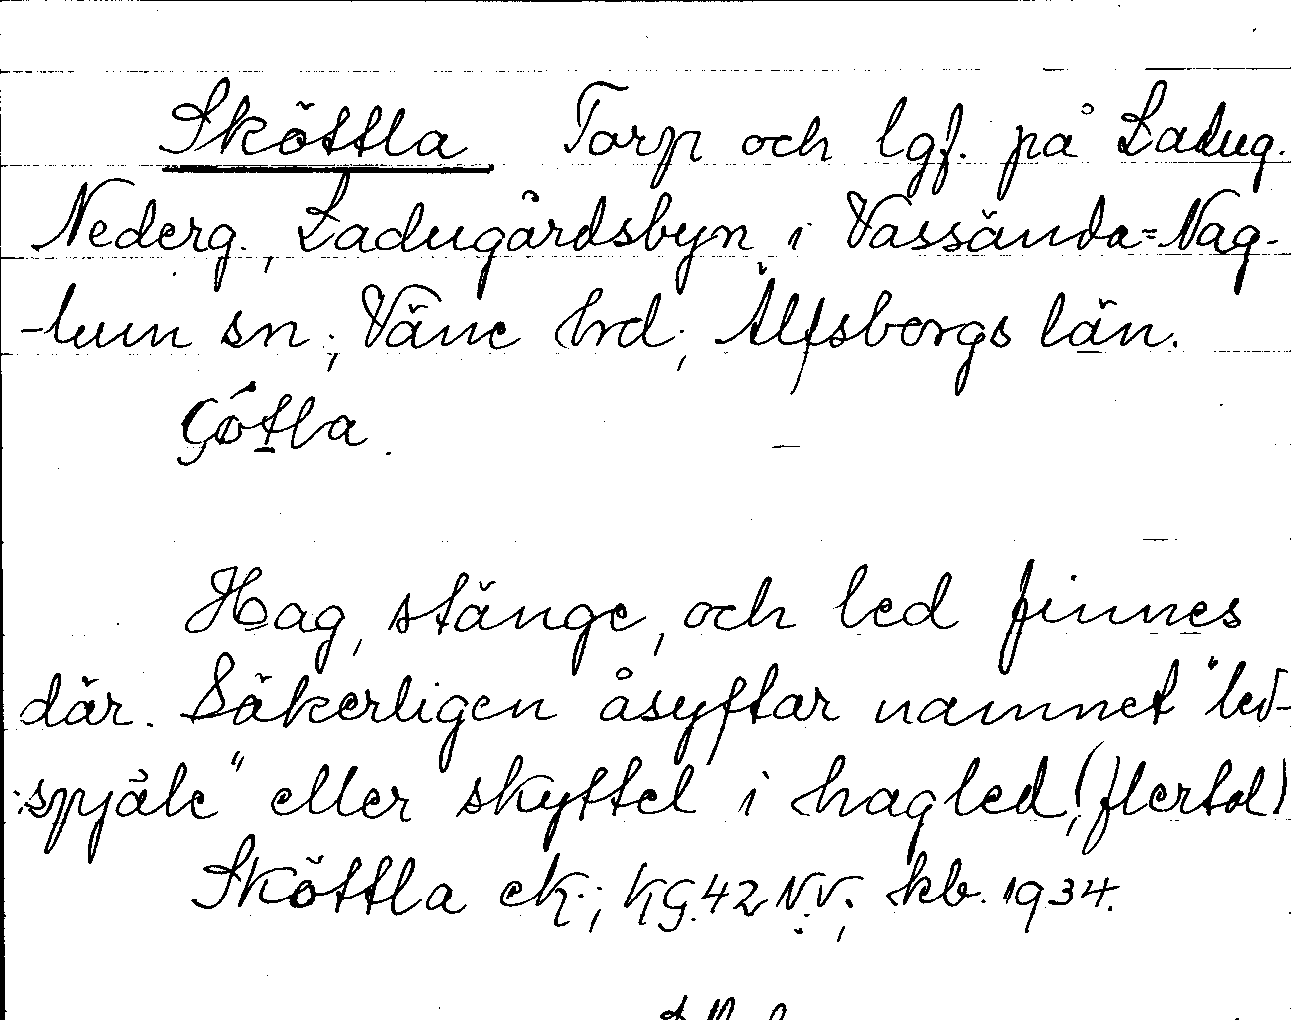 Sköttla Torp och lgf. på Ladug.
Nederg., Ladugårdsbyn i Vassända=Nag-
-lum sn; Väne hrd; Älfsborgs län.
Çǿtla.
Hag, stänge, och led finnes
där. Säkerligen åsyftar namnet "led-
spjäle" eller skyttel i hagled, (flertal)
Sköttla ek.; KG.42 N.V.; kb. 1934.